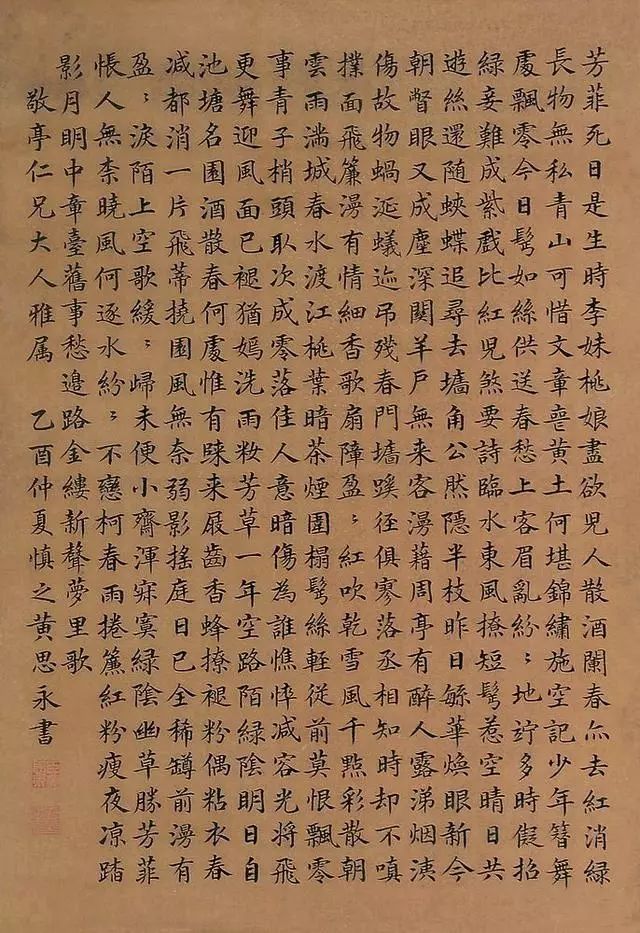 芳菲死日是生時李妹桃娘盡欲兒人散酒闌春亦去紅消綠
長物無私青山可惜文章喪黃土何堪錦繡施空記少年簪舞
處飄零今日鬢如絲供送春愁上客眉亂紛〻地竚多時假招
綠妾難成紫戲比紅兒煞要詩臨水東風撩短鬢惹空晴日共
遊絲還隨蛺蝶追尋去墻角公然隱半枝昨日繁華煥眼新今
朝瞥眼又成塵深關羊戶無来客漫藉周亭有醉人露涕烟洟
傷故物蝸涎蟻迹吊殘春門墻蹊徑俱寥落丞相知時却不嗔
撲面飛簾漫有情細香歌扇障盈〻紅吹乾雪風千點彩散朝
雲雨滿城春水渡江桃葉暗茶煙圍榻鬢絲輕從前莫恨飄零
事青子梢頭取次成零落佳人意暗傷為誰憔悴减容光將飛
更舞迎風面已褪猶嫣洗雨粧芳草一年空路陌綠陰明日自
池塘名園酒散春何處惟有睐来屐齒香蜂撩褪粉偶粘衣春
减都消一片飛蒂撓園風無奈弱影搖庭日已全稀罇前漫有
盈〻淚陌上空歌緩〻歸未便小齋渾寂寞綠陰幽草勝芳菲
悵人無柰曉風何逐水紛〻不戀柯春雨捲簾紅粉瘦夜凉踏
影月明中章臺舊事愁邊路金縷新聲夢里歌
敬亭仁兄大人雅属 乙酉仲夏慎之黃思永書